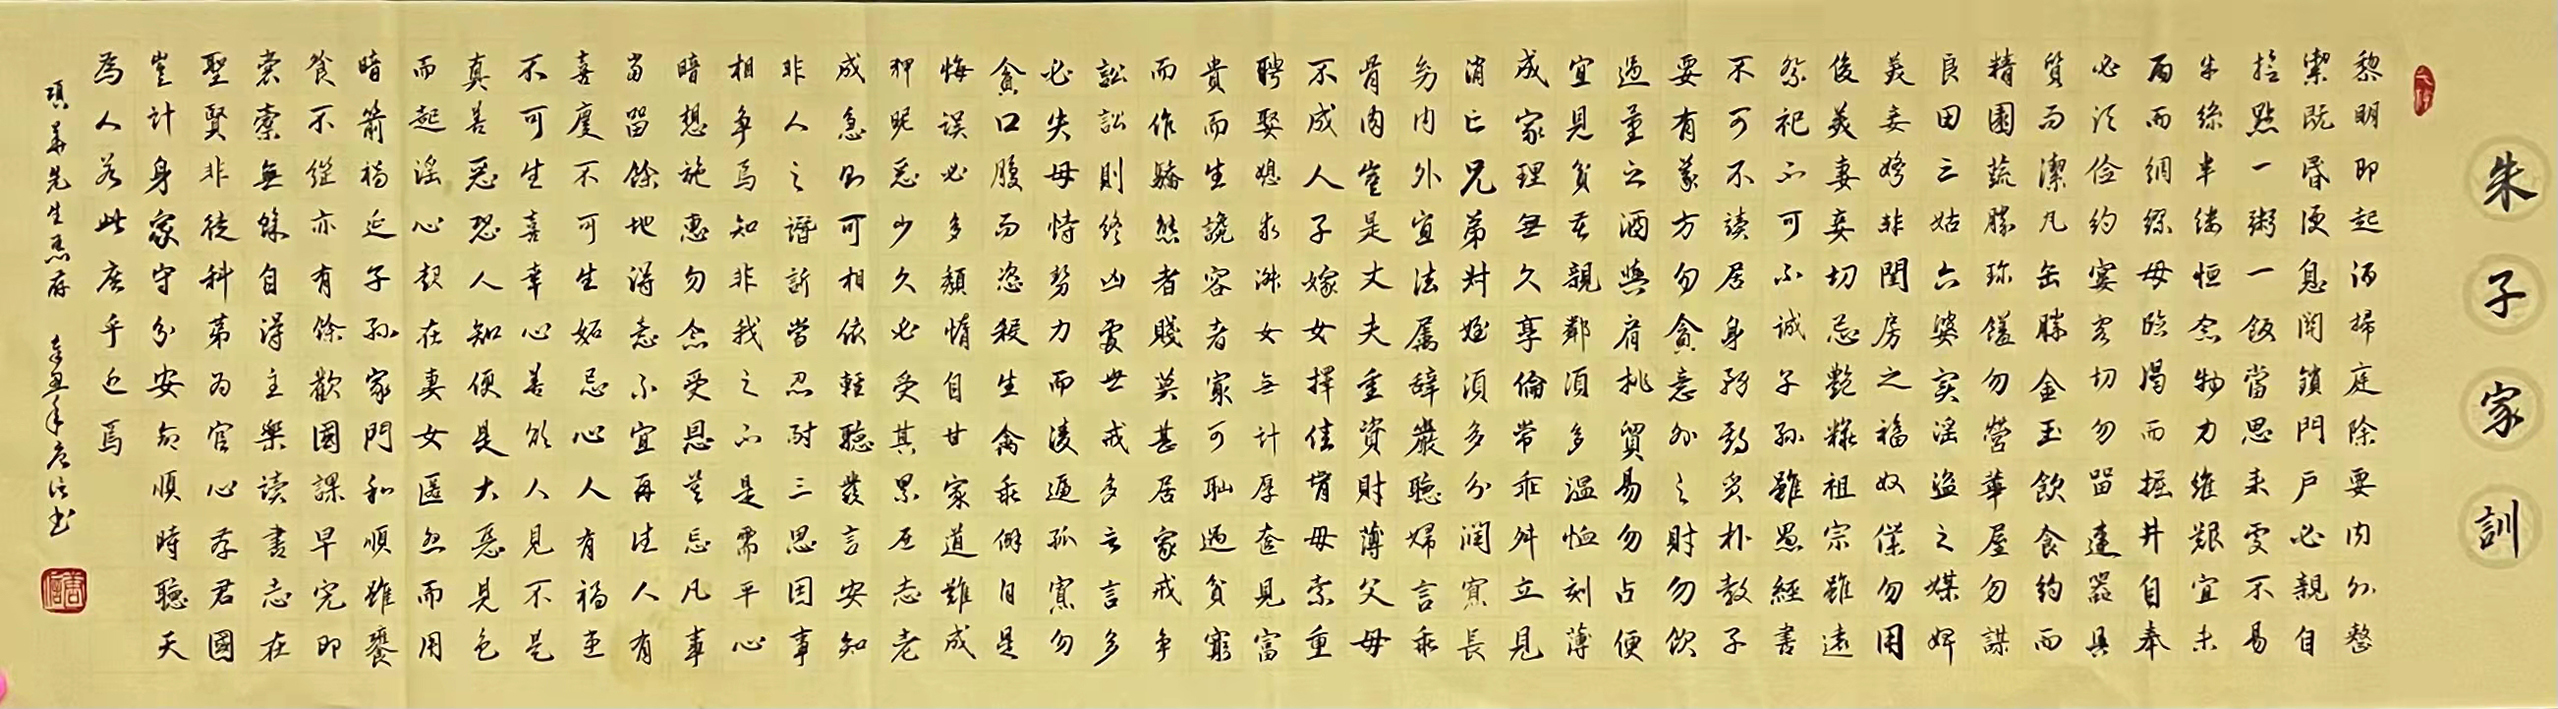 朱子家訓
黎明即起洒掃庭除要内外整
潔既昏便息関鎖門戸必親自
撿點一粥一飯當思来雯不易
半絲半缕恒念物力維艱宜未
雨而綢繆毋臨渴而掘井自奉
必須儉約宴客切勿留連器具
質而潔瓦缶勝金玉飲食約而
精園蔬勝珍饈勿營華屋勿謀
良田三姑六婆实淫盗之媒婢
美妾嬌非閨房之福奴僕勿用
俊美妻妾切忌艶糚祖宗雖遠
祭祀不可不誠子孫雖愚經書
不可不讀居身務期质朴教子
要有義方勿貪意外之財勿飲
過量之酒與肩挑貿易勿占便
宜見貧苦親鄰須多温恤刻薄
成家理無久享倫常乖舛立見
消亡兄弟叔姪須多分潤寡長
幼内外宜法属辞嚴聴婦言乖
骨肉豈是丈夫重資財薄父母
不成人子嫁女擇佳壻毋索重
聘娶媳求淑女無計厚奩見富
貴而生諂容者寂可恥遇貧窮
而作驕態者賤莫甚居家戒争
訟訟則終凶處世戒多言言多
必失毋恃势力而凌逼孤寡勿
貪口腹而恣殺生禽乖僻自是
悔误必多頽惰自甘家道難成
狎昵恶少久必受其累屈志老
成急則可相依輕聴發言安知
非人之譖訴當忍耐三思因事
相争焉知非我之不是需平心
暗想施惠勿念受恩莫忘凡事
當留餘地得意不宜再往人有
喜慶不可生妬忌心人有禍患
不可生喜幸心善欲人見不是
真善恶恐人知便是大惡見色
而起淫心報在妻女匿怨而用
暗箭禍延子孫家門和順雖饔
飧不继亦有餘歡國課早完即
囊橐無餘自得至樂讀書志在
聖賢非徒科第为官心存君國
豈計身家守分安命順時聴天
為人若此庶乎近焉
項華先生惠存 辛丑年彦信书